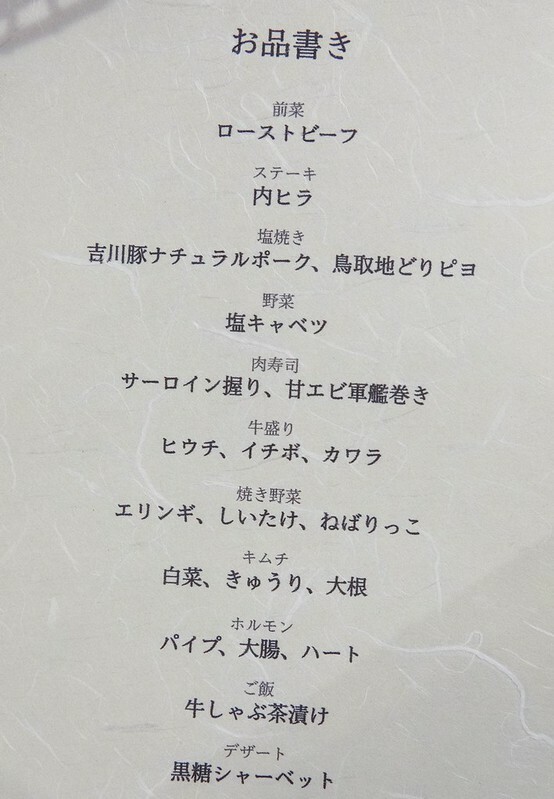 お品書き
前菜
ローストビーフ
ステーキ
内ヒラ
塩焼き
吉川豚ナチュラルポーク、鳥取地どりピヨ
野菜
塩キャベツ
肉寿司
サーロイン握り、甘エビ軍艦巻き
牛盛り
ヒウチ、イチボ、カワラ
焼き野菜
エリンギ、しいたけ、ねばりっこ
キムチ
白菜、きゅうり、大根
ホルモン
パイプ、大腸、ハート
ご飯
牛しゃぶ茶漬け
デザート
黒糖シャーベット